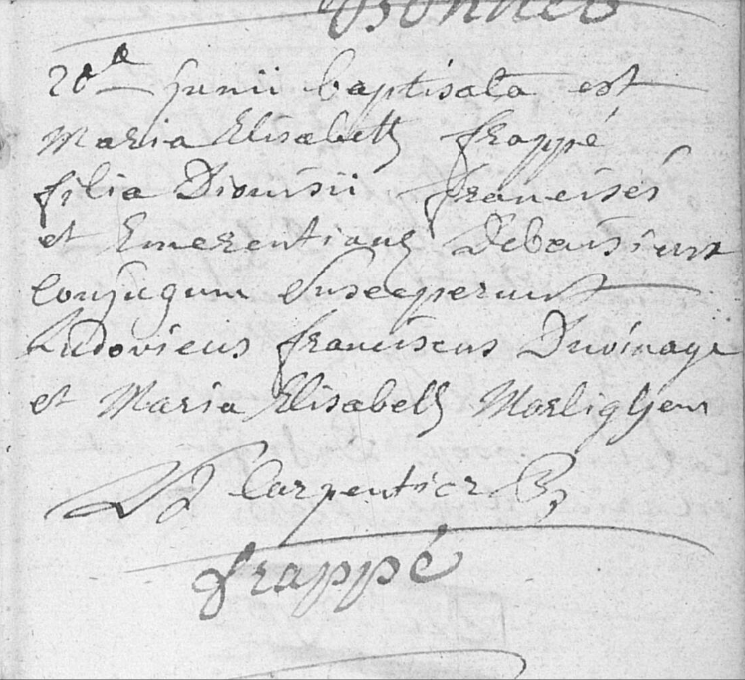 Bonnet
20a Junii baptisata est
Maria Elisabeth frappé
filia Dionisii francisés
et Emerentianę Debaisieux
Conjugum Susceperunt
Ludovicus franciscus Duvinage
et Maria Elisabeth Morlighem
Carpentier
frappé